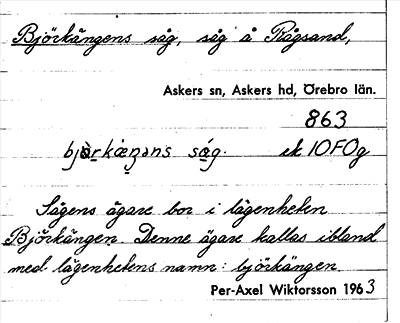 Björkängens såg, såg å Rågsand,
Askers sn, Askers hd, Örebro län.
863
björkæŋəns såg. ek 10F0g
Sågens ägare bor i lägenheten
Björkängen. Denne ägare kallas ibland
med lägenhetens namn: björkängen.
Per-Axel Wiktorsson 1963